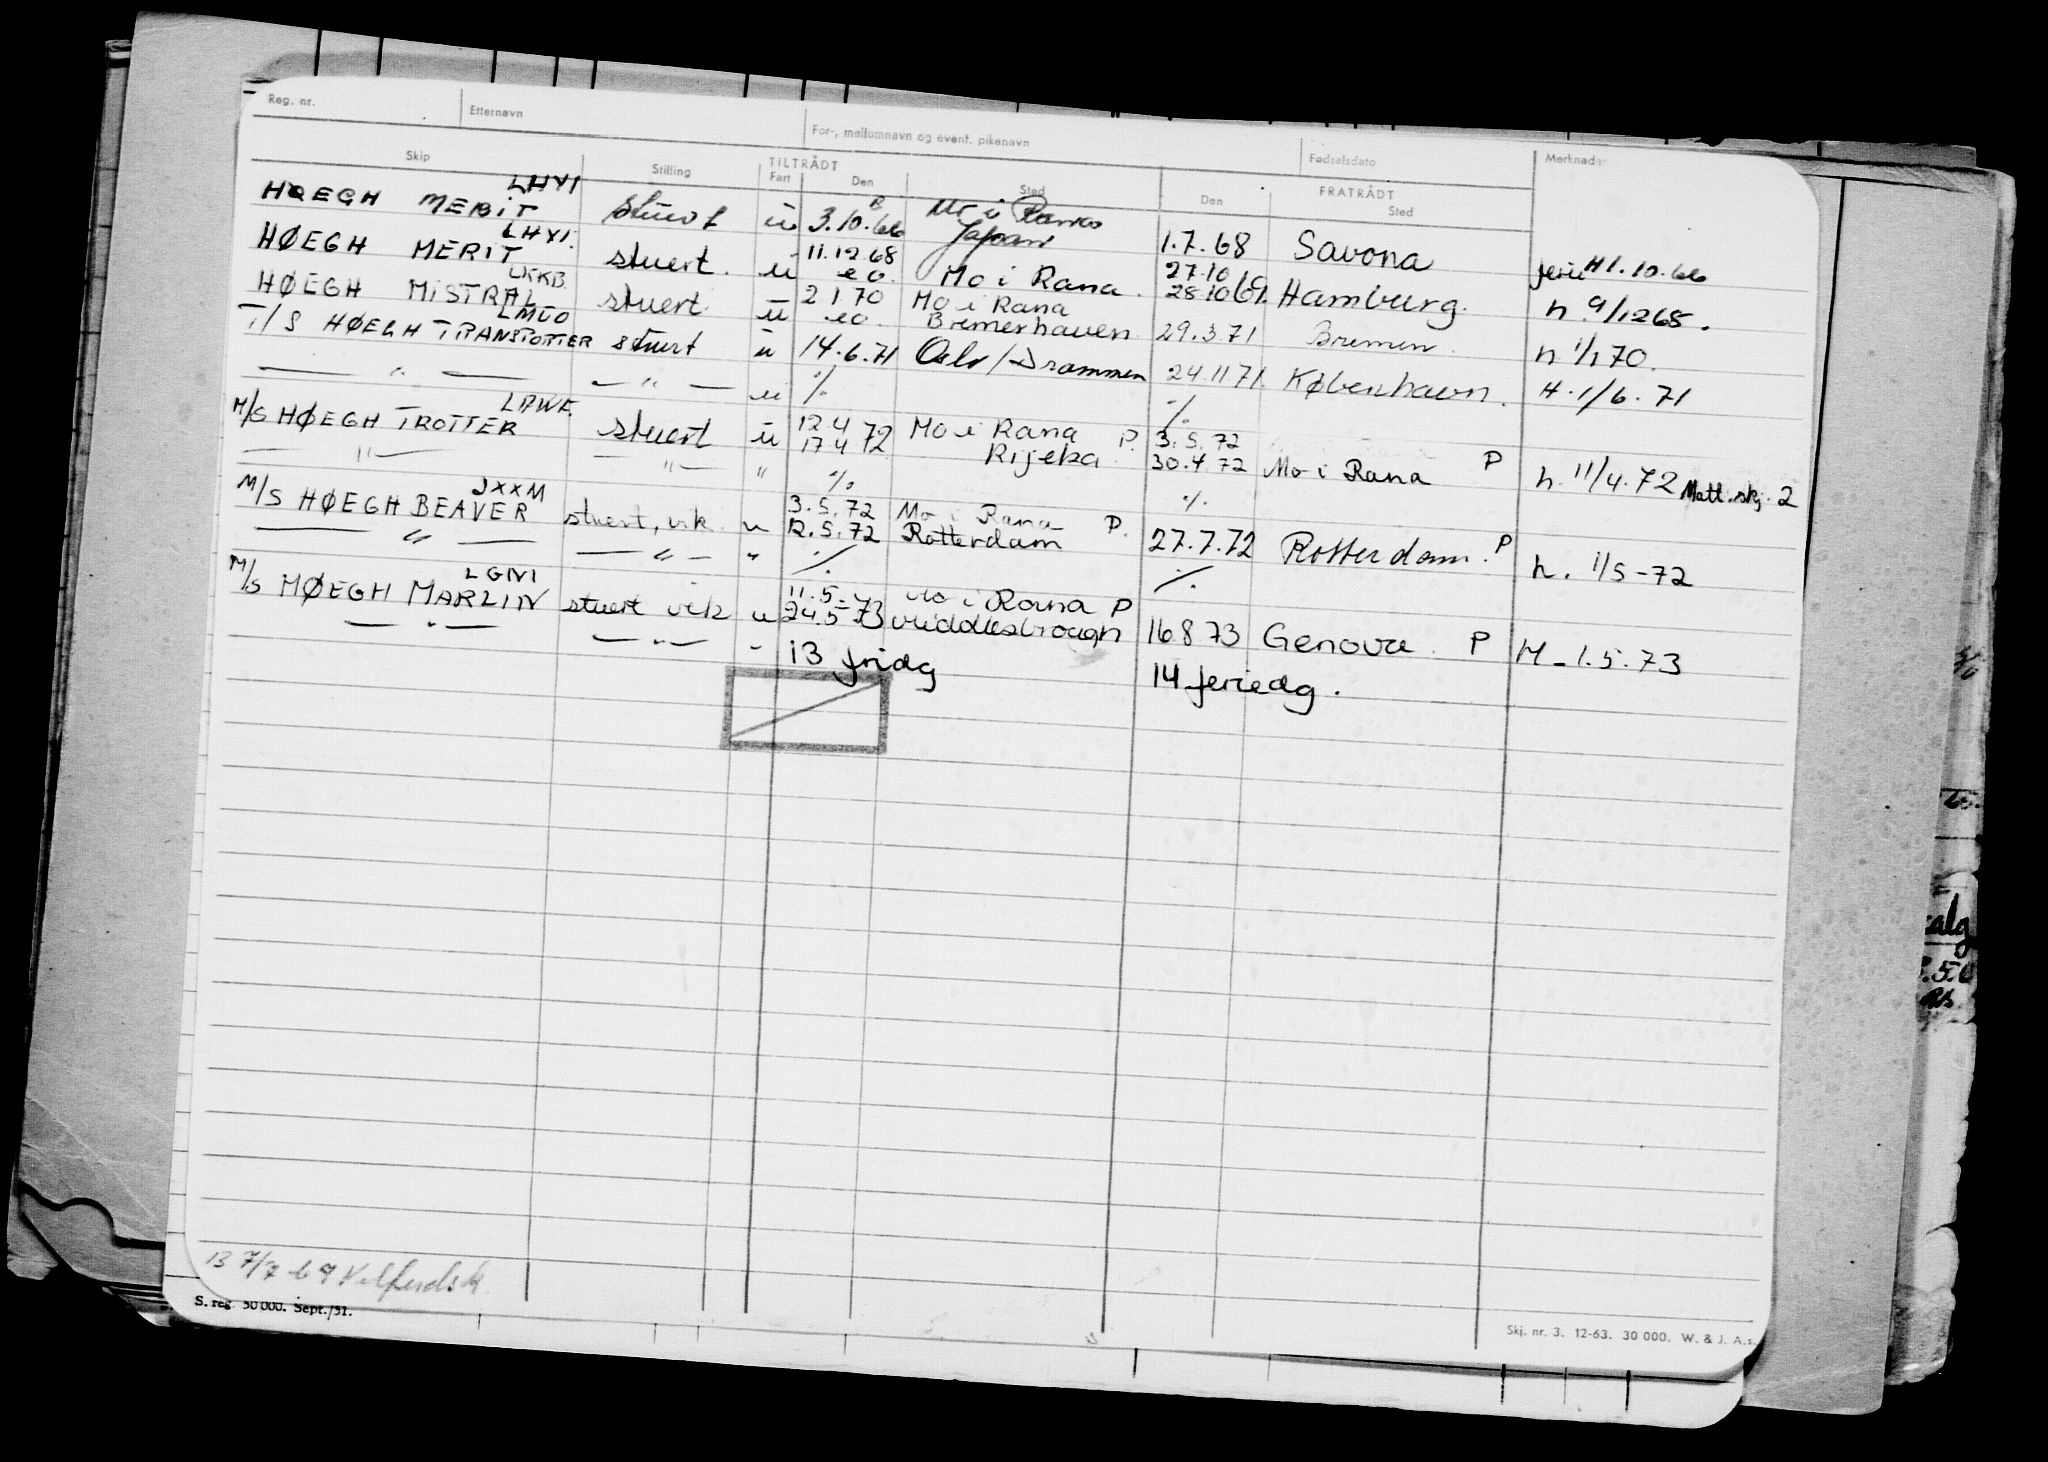 Reg. nr. Etternavn For-, mellomnavn og event. pikenavn Fødselsdato Merknader
Skip Stilling TILTRÅDT Fart Den Sted FRATRÅDT Den Sted
LHYI
HØEGH MERIT stuert u 3.10.66 Mo i Rana Japan 1.7.68 Savona ferie H 1.10.66
LHYI.
HØEGH MERIT stuert. u 11.12.68 eo. Mo i Rana. 27.10 28.10.69. Hamburg. h 9/1268.
LKKB
HØEGH MISTRAL stuert. u 2 1.70 eo. Mo i Rana Bremerhaven 29.3.71 Bremen. h 1/1 70.
LMUO
T/S HØEGH TRANSPORTER stuert u 14.6.71 Oslo/Drammen 24.11 71. København. H. 1/6.71
— " — — " — u % %
LAWE.
M/S HØEGH TROTTER stuert u 12.4 17.4 72 Mo i Rana P Rijeka. 3.5.72 30.4.72 Mo i Rana P h. 11/4.72 Matt.skj. 2
— " — — " — " % %
JXXM
M/S HØEGH BEAVER stuert, vik. u 3.5.72 12.5.72 Mo i Rana P. Rotterdam 27.7.72 Rotterdam. P h. 1/5-72
— " — — " — " % %
LGNI
M/S HØEGH MARLIN stuert vik u 11.5 24.5-73 Mo i Rana P Middlesbrough 16 8 73 Genova. P M-1.5.73
— " — — " — " 13 fridg 14 feriedg.
13 7/7-69
S. reg. 50 000. Sept./51.
Skj. nr. 3. 12-63. 30 000. W. & J. A.s.